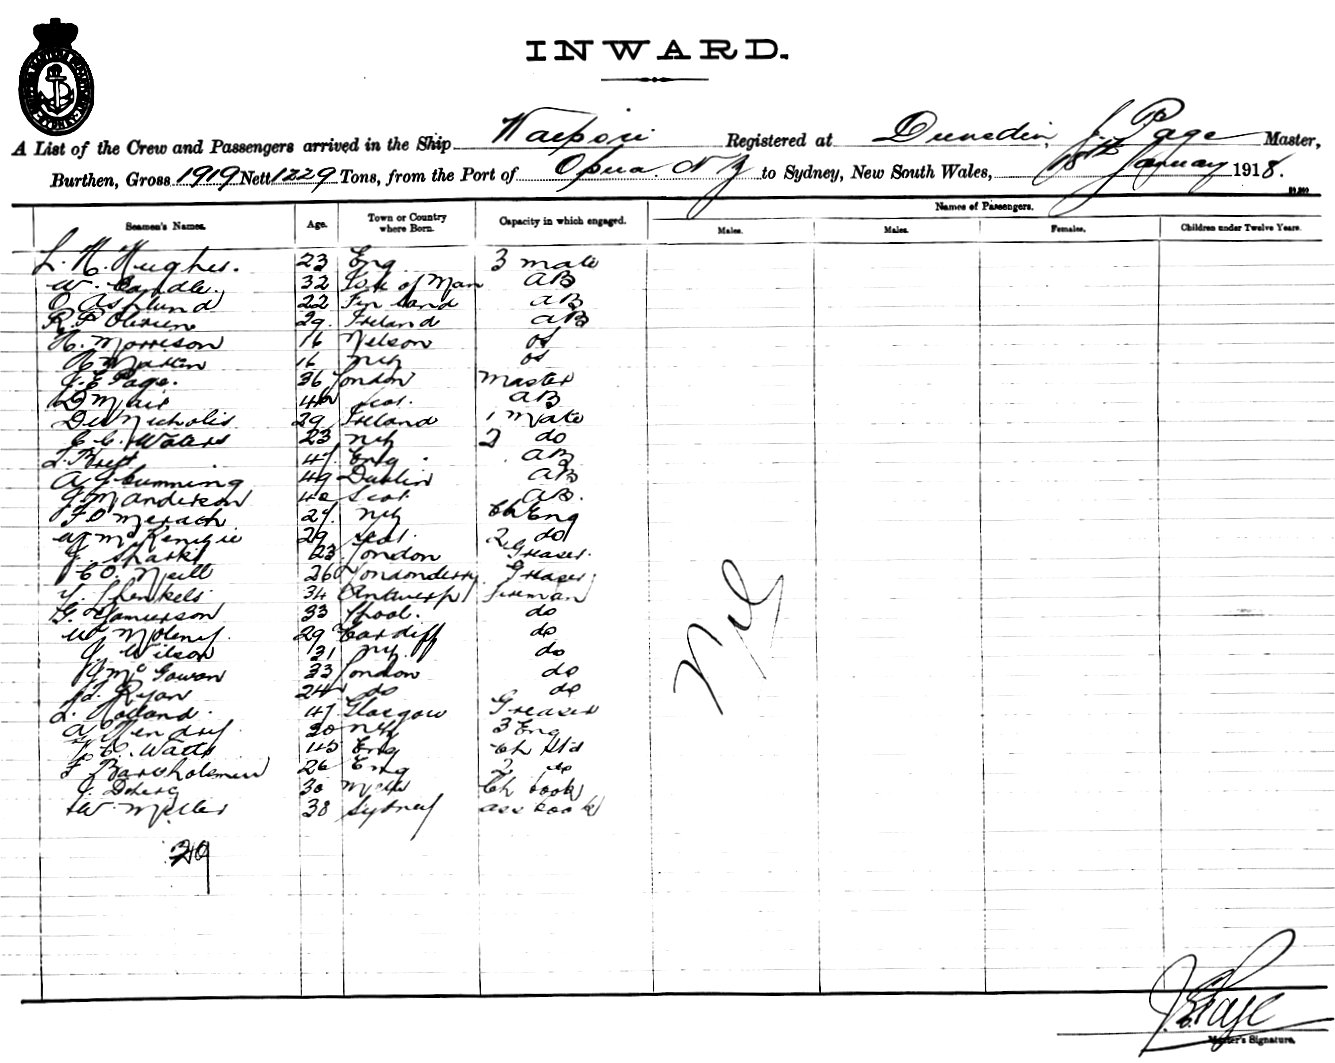 INWARD.
A List of the Crew and Passengers arrived in the Ship Waipori Registered at Dunedin, J. P. Page Master,
Burthen, Gross 1919 Nett 1229 Tons, from the Port of Opua N Z to Sydney, New South Wales, 18th January 1918.
Names of Passengers.
Seamen's Names. Age. Town or Country where Born. Capacity in which engaged. Males. Males. Females. Children under Twelve Years.
L. H. Hughes. 23 Eng 3 mate
W. 32 Isle of Man AB
O Asplund 22 Finland AB
R. P. OBrien 29 Ireland AB
H. Morrison 16 Nelson OS
16 NZ OS
J. E Page. 36 London Master
D Muir Scot. AB
Nicholis 29 Ireland 1 Mate
C. C. Waters 23 NZ 2 do
47 Eng. AB
A G Cumming 49 Dublin AB
J M Anderson 40 Scot. AB.
27 NZ Ch Eng
McKenzie 29 Scot. 2 do
J. Sharks 23 London Greaser.
C O. Neill 26 Londonderry Greaser
34 Antwerp fireman
G. Jamieson 33 Lpool. do
W. 29 Cardiff do
J Wilson 31 NZ do
J McGowan 33 London do
J. Ryan 24 do do
L. Holland. 47 Glasgow Greaser
A Hendry 20 NZ 3 Eng
Watts 45 Eng Ch Std
F Bartholomew 26 Eng 2 do
J. 30 Ch Cook
W. Miller 38 Sydney Ass Cook
29
Nil
J. E. Page
Master's Signature.